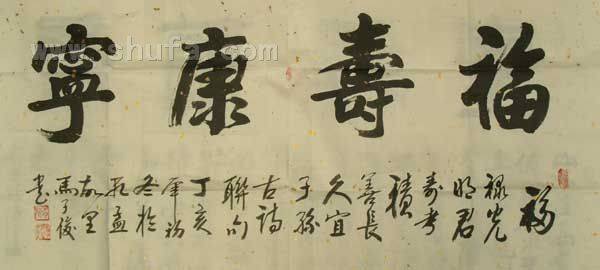 福壽康寧
福
禄光
明君
寿考
積
善長
久宜
子孫
古詩
聯句
丁亥
年初
冬於
孔孟
故里
馬子俊
書